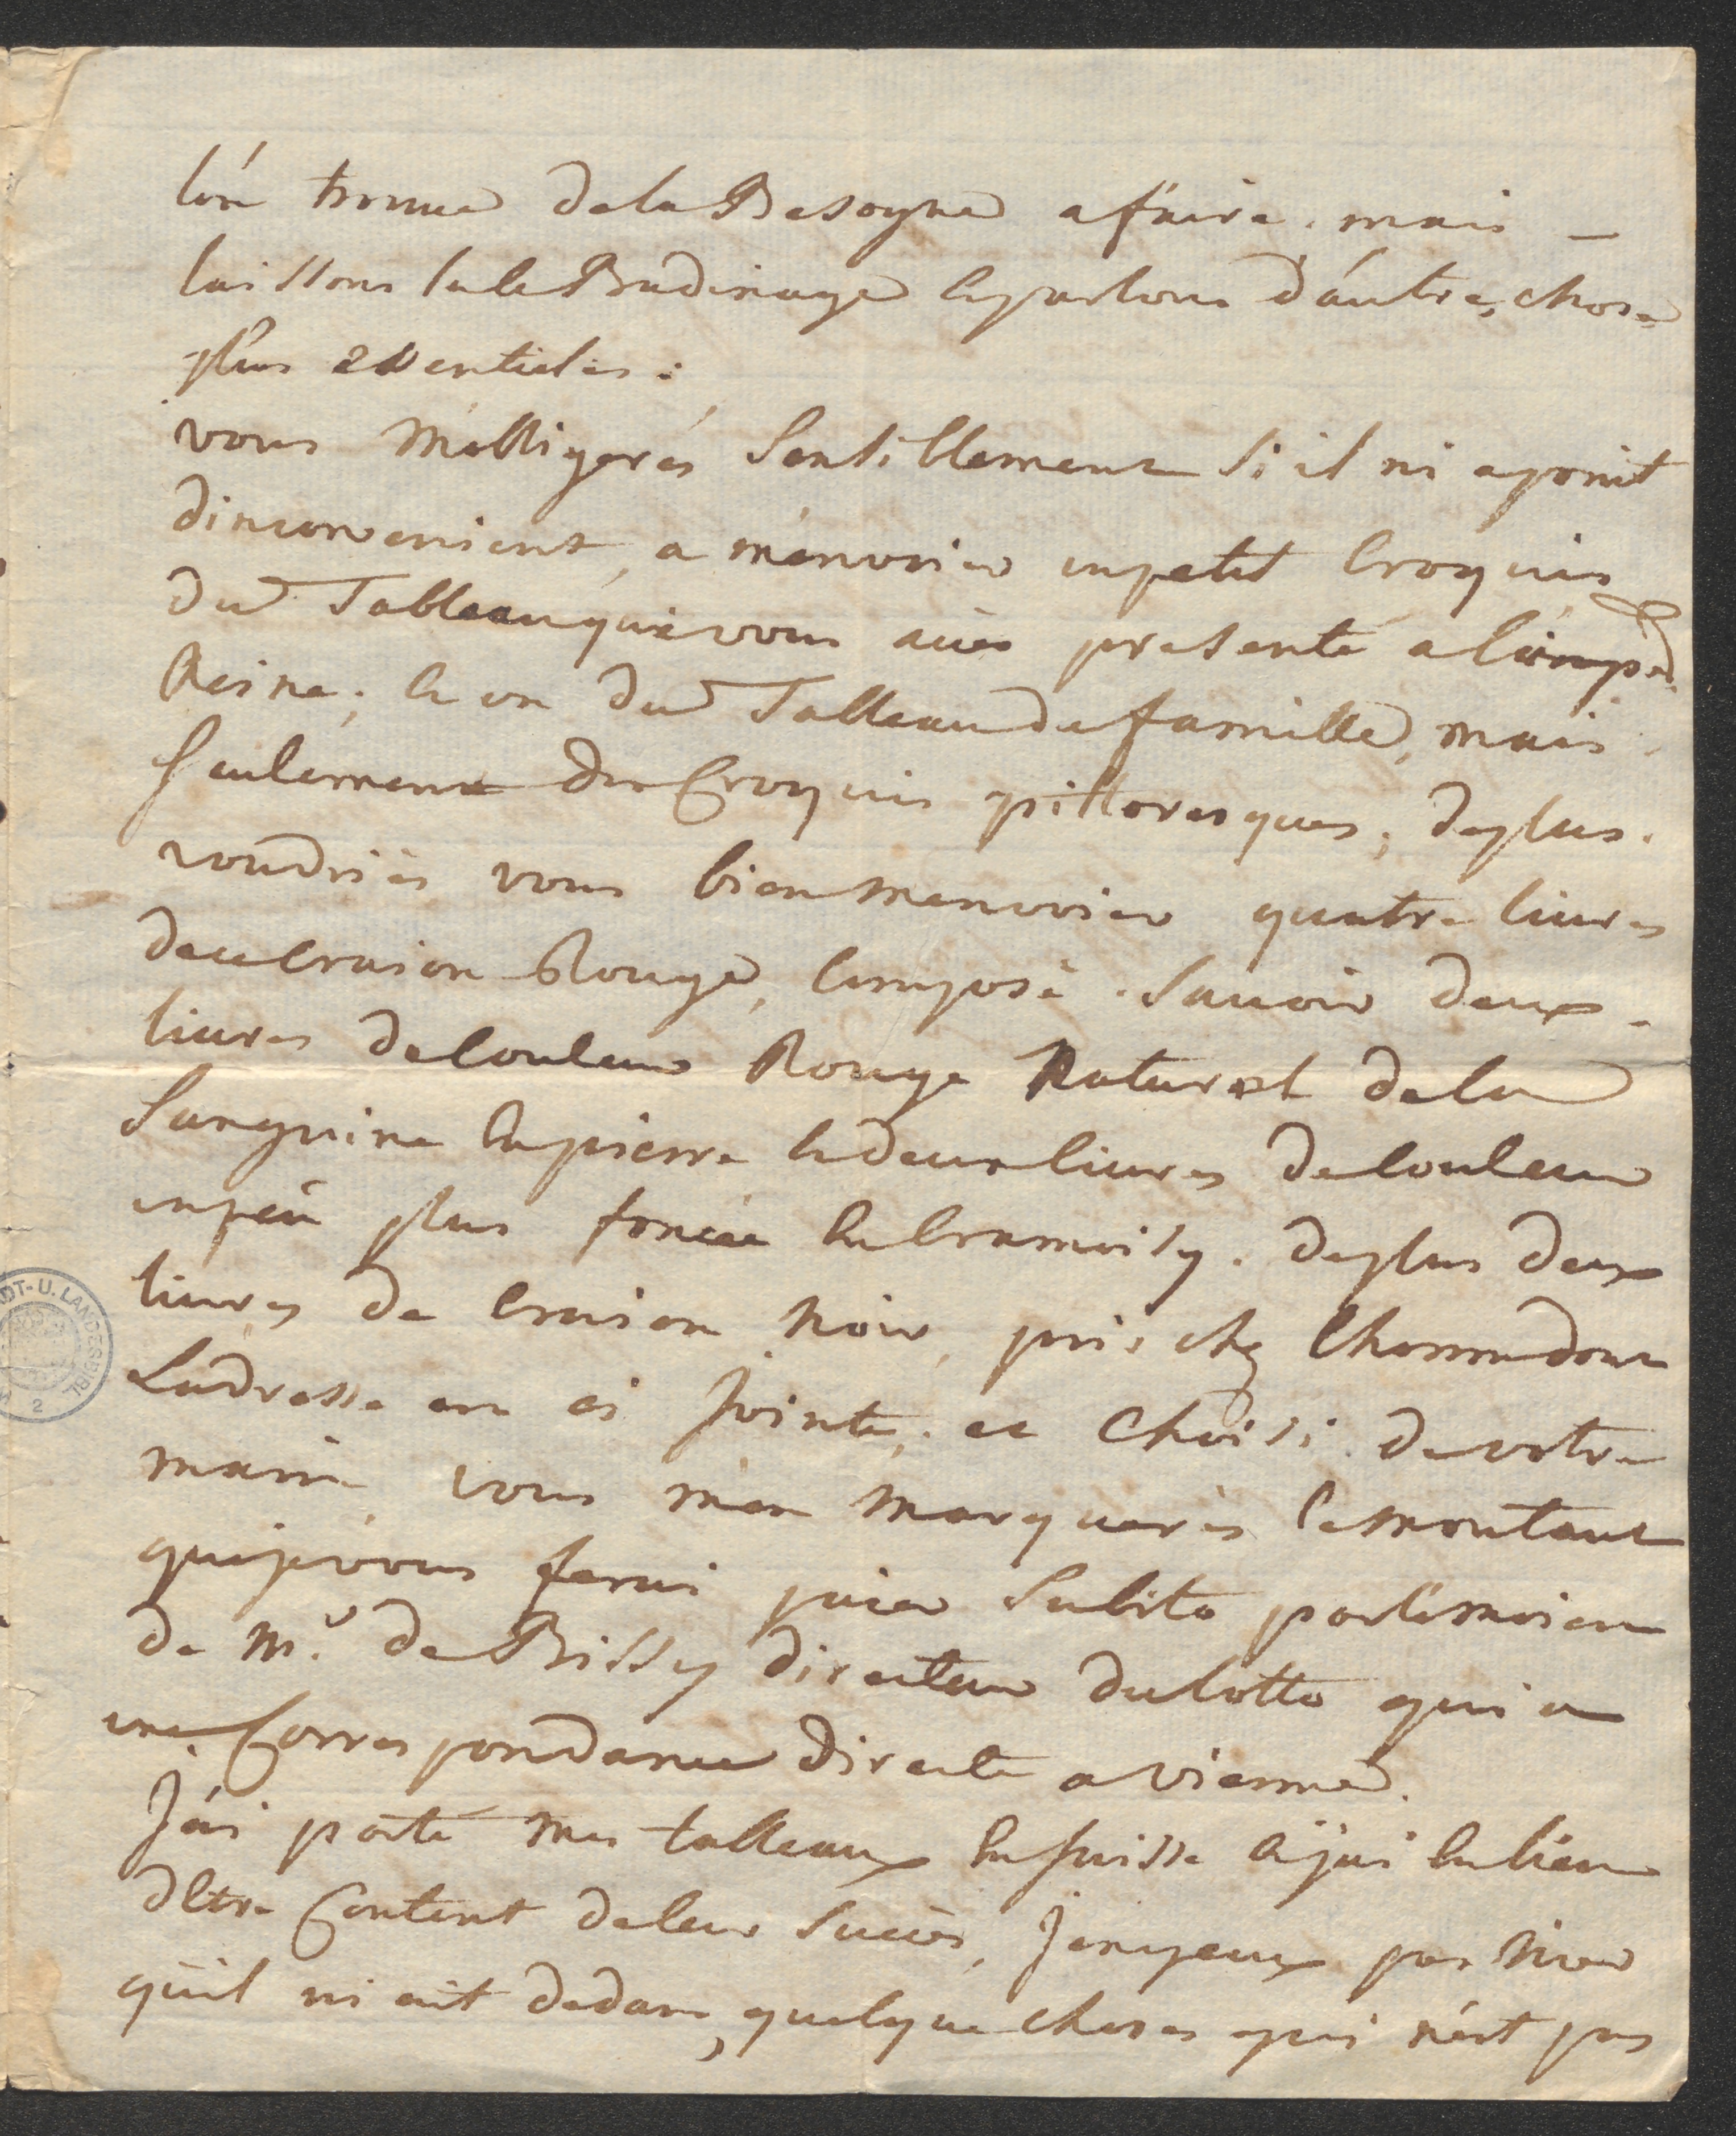 l'on trouve dela Besogne afaire. mais –
laissons la le Badinage et parlons d'autres chose
plus essentieles:
vous m'obligerés sensiblement si il ni a point
dinconvenient, a m'envoier un petit Croquis
du Tableau que vous avés presenté a l'imp.
Reine; et un du Tableau de famille, mais
seulement des Croquis pittoresques; deplus.
voudriés vous bien menvoier quatre livres
de ce craion Rouge, composé. savoir deux.
livres de couleur Rouge Naturel dela
sanguine en pierre et deux livres de couleur
un peu plus foncée en cramoisy. deplus deux
livres de craion noir, pris chez
Ladresse en ci Jointe; et choisi de votre
main, vous m'en marquerés le montant
que je vous ferai paier subito par le moien
de Mr. de Bissy directeur du lotto qui a
une Correspondance directe a vienne.
J'ai porté mes tableaux en suisse et j'ai eu lieu
d'etre Content de leur succès, Je ne peux pas nier
qu'il ni ait dedans, quelque choses qui n'est pas
DT-U. LANDESBIBL
2